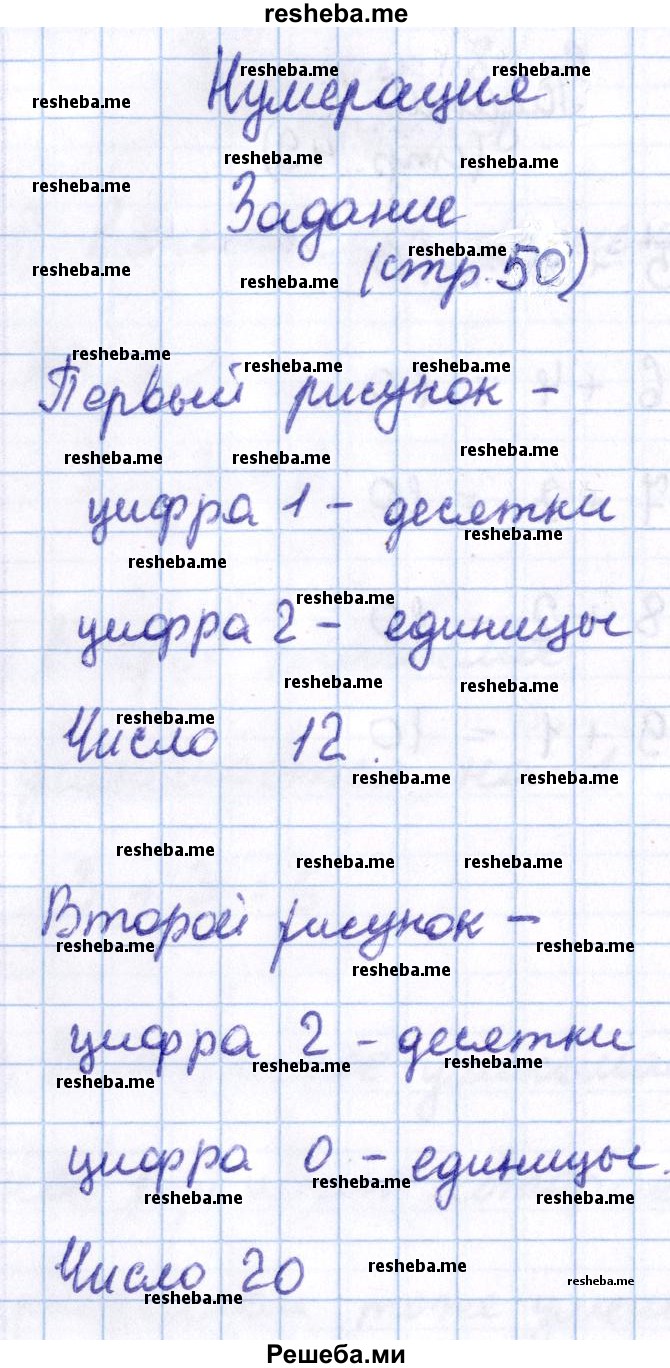 resheba.me
Нумерация
Задание
(стр. 50)
Первый рисунок –
цифра 1 – десятки
цифра 2 – единицы
Число 12.
Второй рисунок –
цифра 2 – десятки
цифра 0 – единицы.
Число 20
resheba.me
Решеба.ми